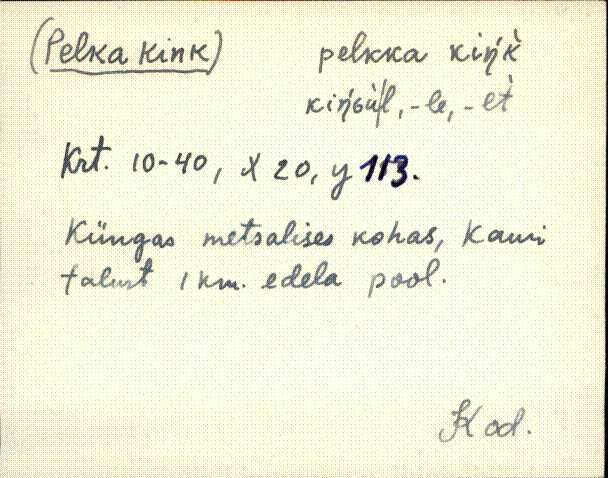 (Pelka kink) pelkka kińk̀
kińGùl, -le, -et̀
Krt. 10-40, X 20, y 113.
Küngas metsalises kohas, Kauri
talust 1 km. edela pool.
Kod.